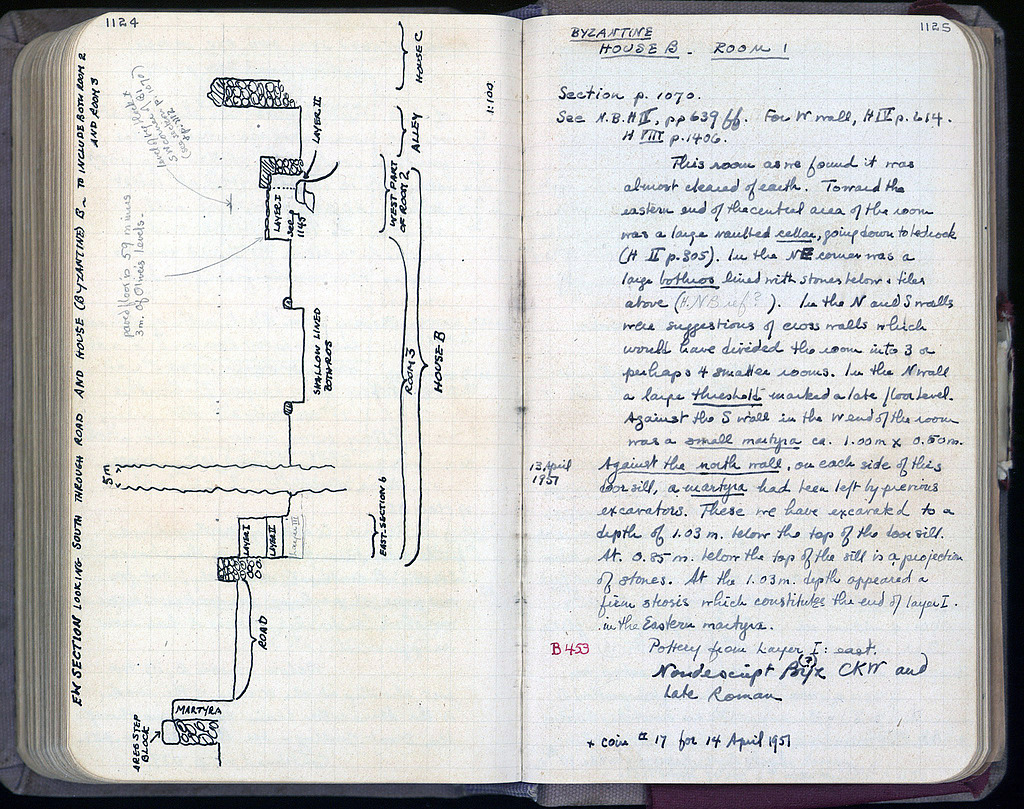 1124
EW SECTION LOOKING SOUTH THROUGH ROAD AND HOUSE (BYZANTINE) B – TO INCLUDE BOTH ROOM 2
AND ROOM 3
paved floor is .59 minus
3m. of Olivers levels.
5m
AREG STEP
BLOCK
MARTYRA
ROAD
LAYER I
LAYER II
Layer III
EAST. SECTION 6
SHALLOW LINED
BOTHROS
ROOM 3
HOUSE B
LAYER I
See p
1145
WEST PART
OF ROOM 2
LAYER II
ALLEY
HOUSE C
1:100
1125
BYZANTINE
HOUSE B – ROOM 1
Section p. 1070.
See N.B. H II, pp 639 ff. For W wall, H IV p. 614.
H VIII p. 1406.
This room as we found it was
almost cleared of earth. Toward the
eastern end of the central area of the room
was a large vaulted cellar, going down to bedrock
(H II p. 805). In the NE corner was a
large bothros lined with stones below & tiles
above (H. NB ref?). In the N and S walls
were suggestions of cross walls which
would have divided the room into 3 or
perhaps 4 smaller rooms. In the N wall
a large threshold marked a late floor level.
Against the S wall in the W end of the room
was a small martyra ca. 1.00 m x 0.50 m.
13 April
1951
Against the north wall, on each side of this
door sill, a martyra had been left by previous
excavators. These we have excavated to a
depth of 1.03 m. below the top of the door sill.
At 0.85 m. below the top of the sill is a projection
of stones. At the 1.03 m. depth appeared a
firm strosis which constitutes the end of layer I.
in the Eastern martyra.
B 453
Pottery from Layer I: east.
Nondescript Byz (?) CKW and
late Roman
+ coin # 17 for 14 April 1951